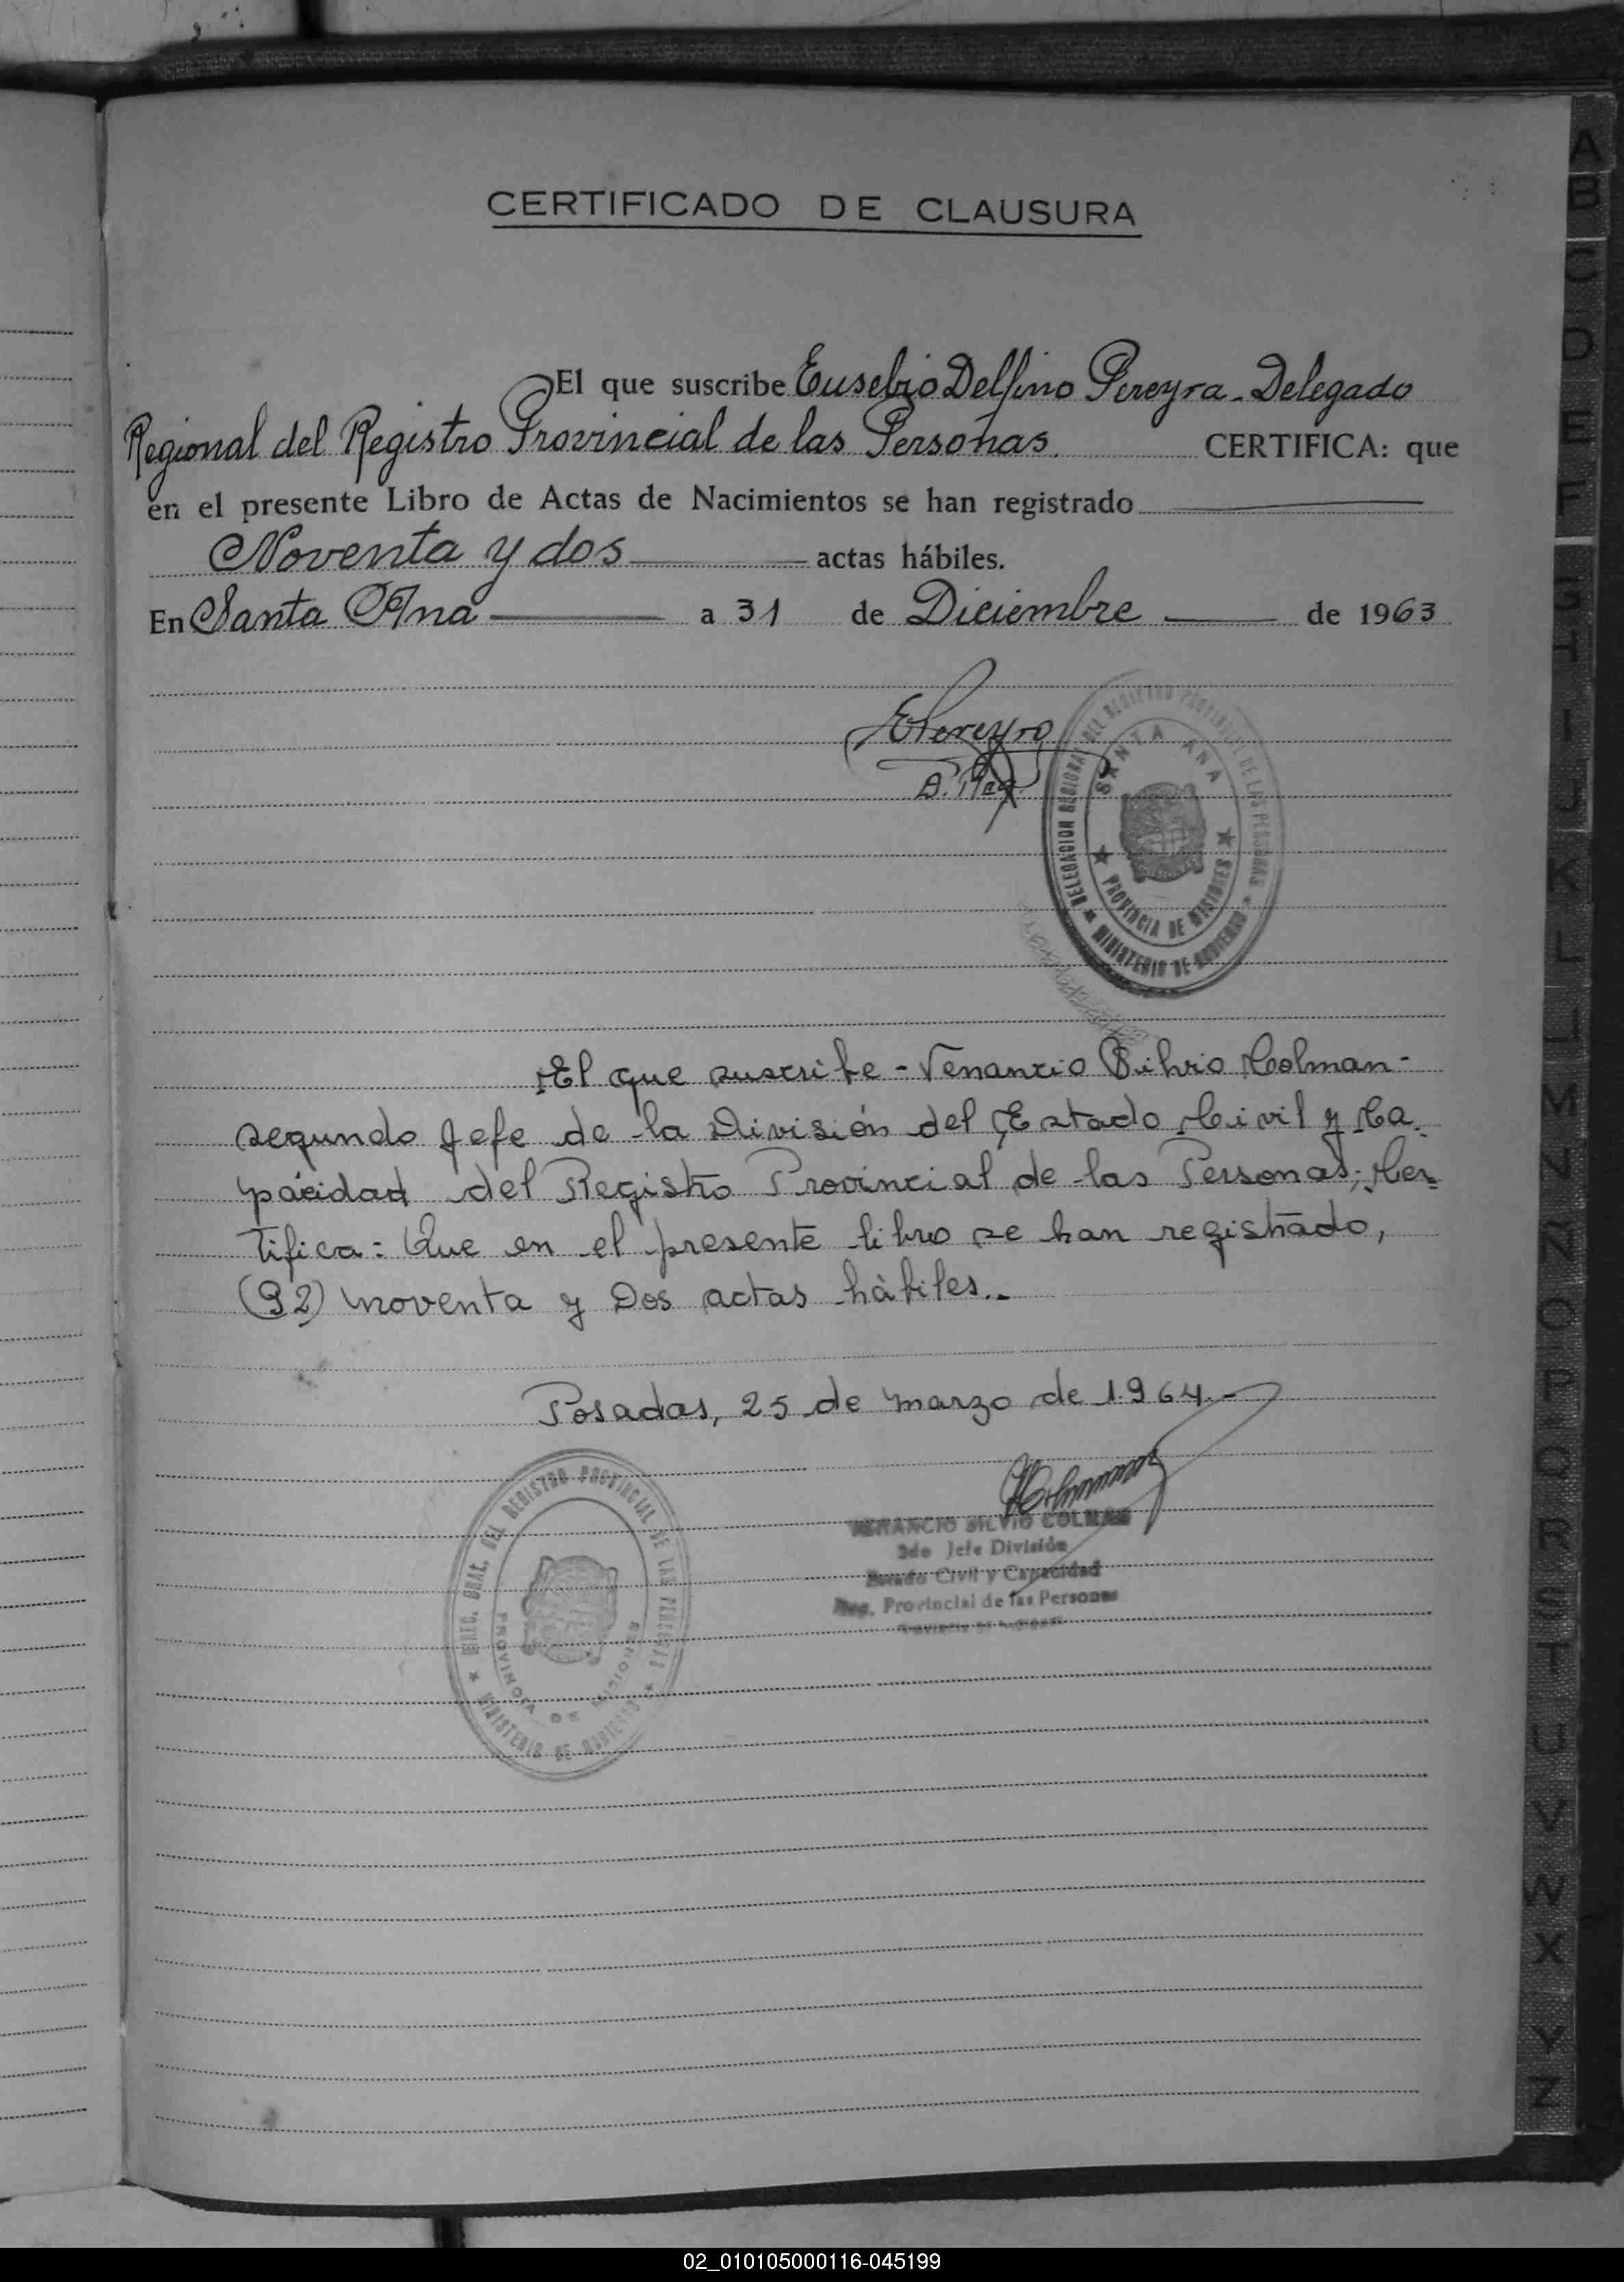 CERTIFICADO DE CLAUSURA
El que suscribe Eusebio Delfino Pereyra - Delegado
Regional del Registro Provincial de las Personas. CERTIFICA: que
en el presente Libro de Actas de Nacimientos se han registrado
Noventa y dos actas hábiles.
En Santa Ana a 31 de Diciembre de 1963
EPereyra
DELEGACION REGIONAL DEL REGISTRO PROVINCIAL DE LAS PERSONAS
SANTA ANA
PROVINCIA DE MISIONES
MINISTERIO DE GOBIERNO
El que suscribe - Venancio Silvio Colman -
segundo Jefe de la División del Estado Civil y Ca-
pacidad del Registro Provincial de las Personas; Cer-
tifica: Que en el presente libro se han registrado,
(92) noventa y Dos actas hábiles..
Posadas, 25 de marzo de 1.964.-
VENANCIO SILVIO COLMAN
2do Jefe División
Estado Civil y Capacidad
Reg. Provincial de las Personas
DIREC. GRAL. DEL REGISTRO PROVINCIAL DE LAS PERSONAS
PROVINCIA DE MISIONES
MINISTERIO DE GOBIERNO
A
B
C
D
E
F
G
H
I
J
K
L
LL
M
N
Ñ
O
P
Q
R
S
T
U
V
W
X
Y
Z
02_010105000116-045199